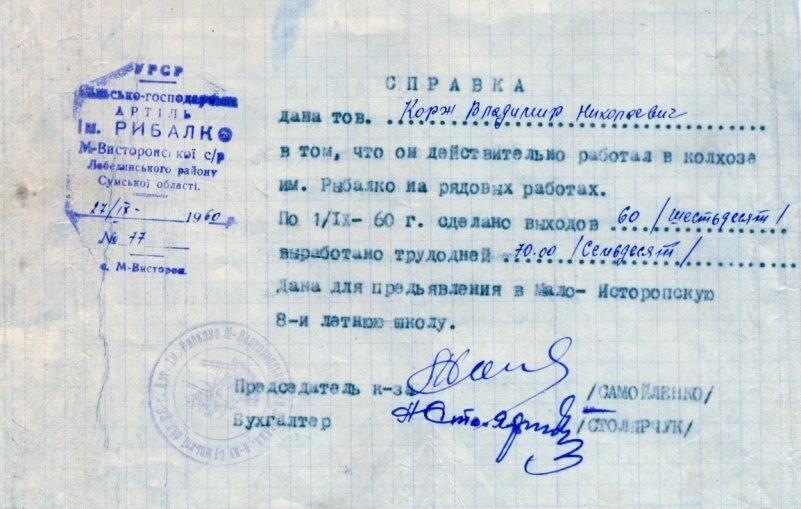 УРСР
Сільсько-господарська
АРТІЛЬ
Ім. РИБАЛКО
М-Висторонської с/р
Лебединського району
Сумської області.
27/IX- 1960 р.
№ 77
с. М-Висторон.
СПРАВКА
дана тов. Корж Владимир Николаевич
в том, что он действительно работал в колхозе
им. Рыбалко на рядовых работах.
По 1/IХ- 60 г. сделано выходов 60 /шестьдесят/
выработано трудодней 70.00 /Семьдесят/
Дана для предъявления в Мало- Исторопскую
8-и летнюю школу.
Председатель к-за /САМОЙЛЕНКО/
Бухгалтер НСтолярчук /СТОЛЯРЧУК/